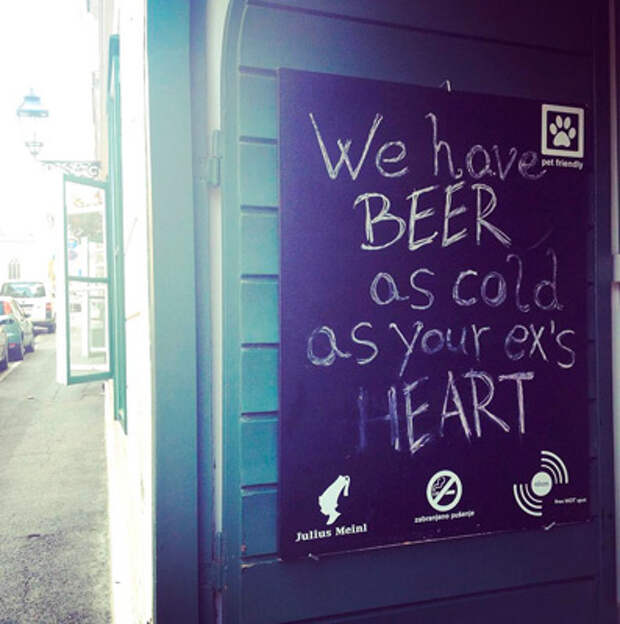 We have
pet friendly
BEER
as cold
as your ex's
HEART
Julius Meinl
zabranjeno pušenje
free HOT spot